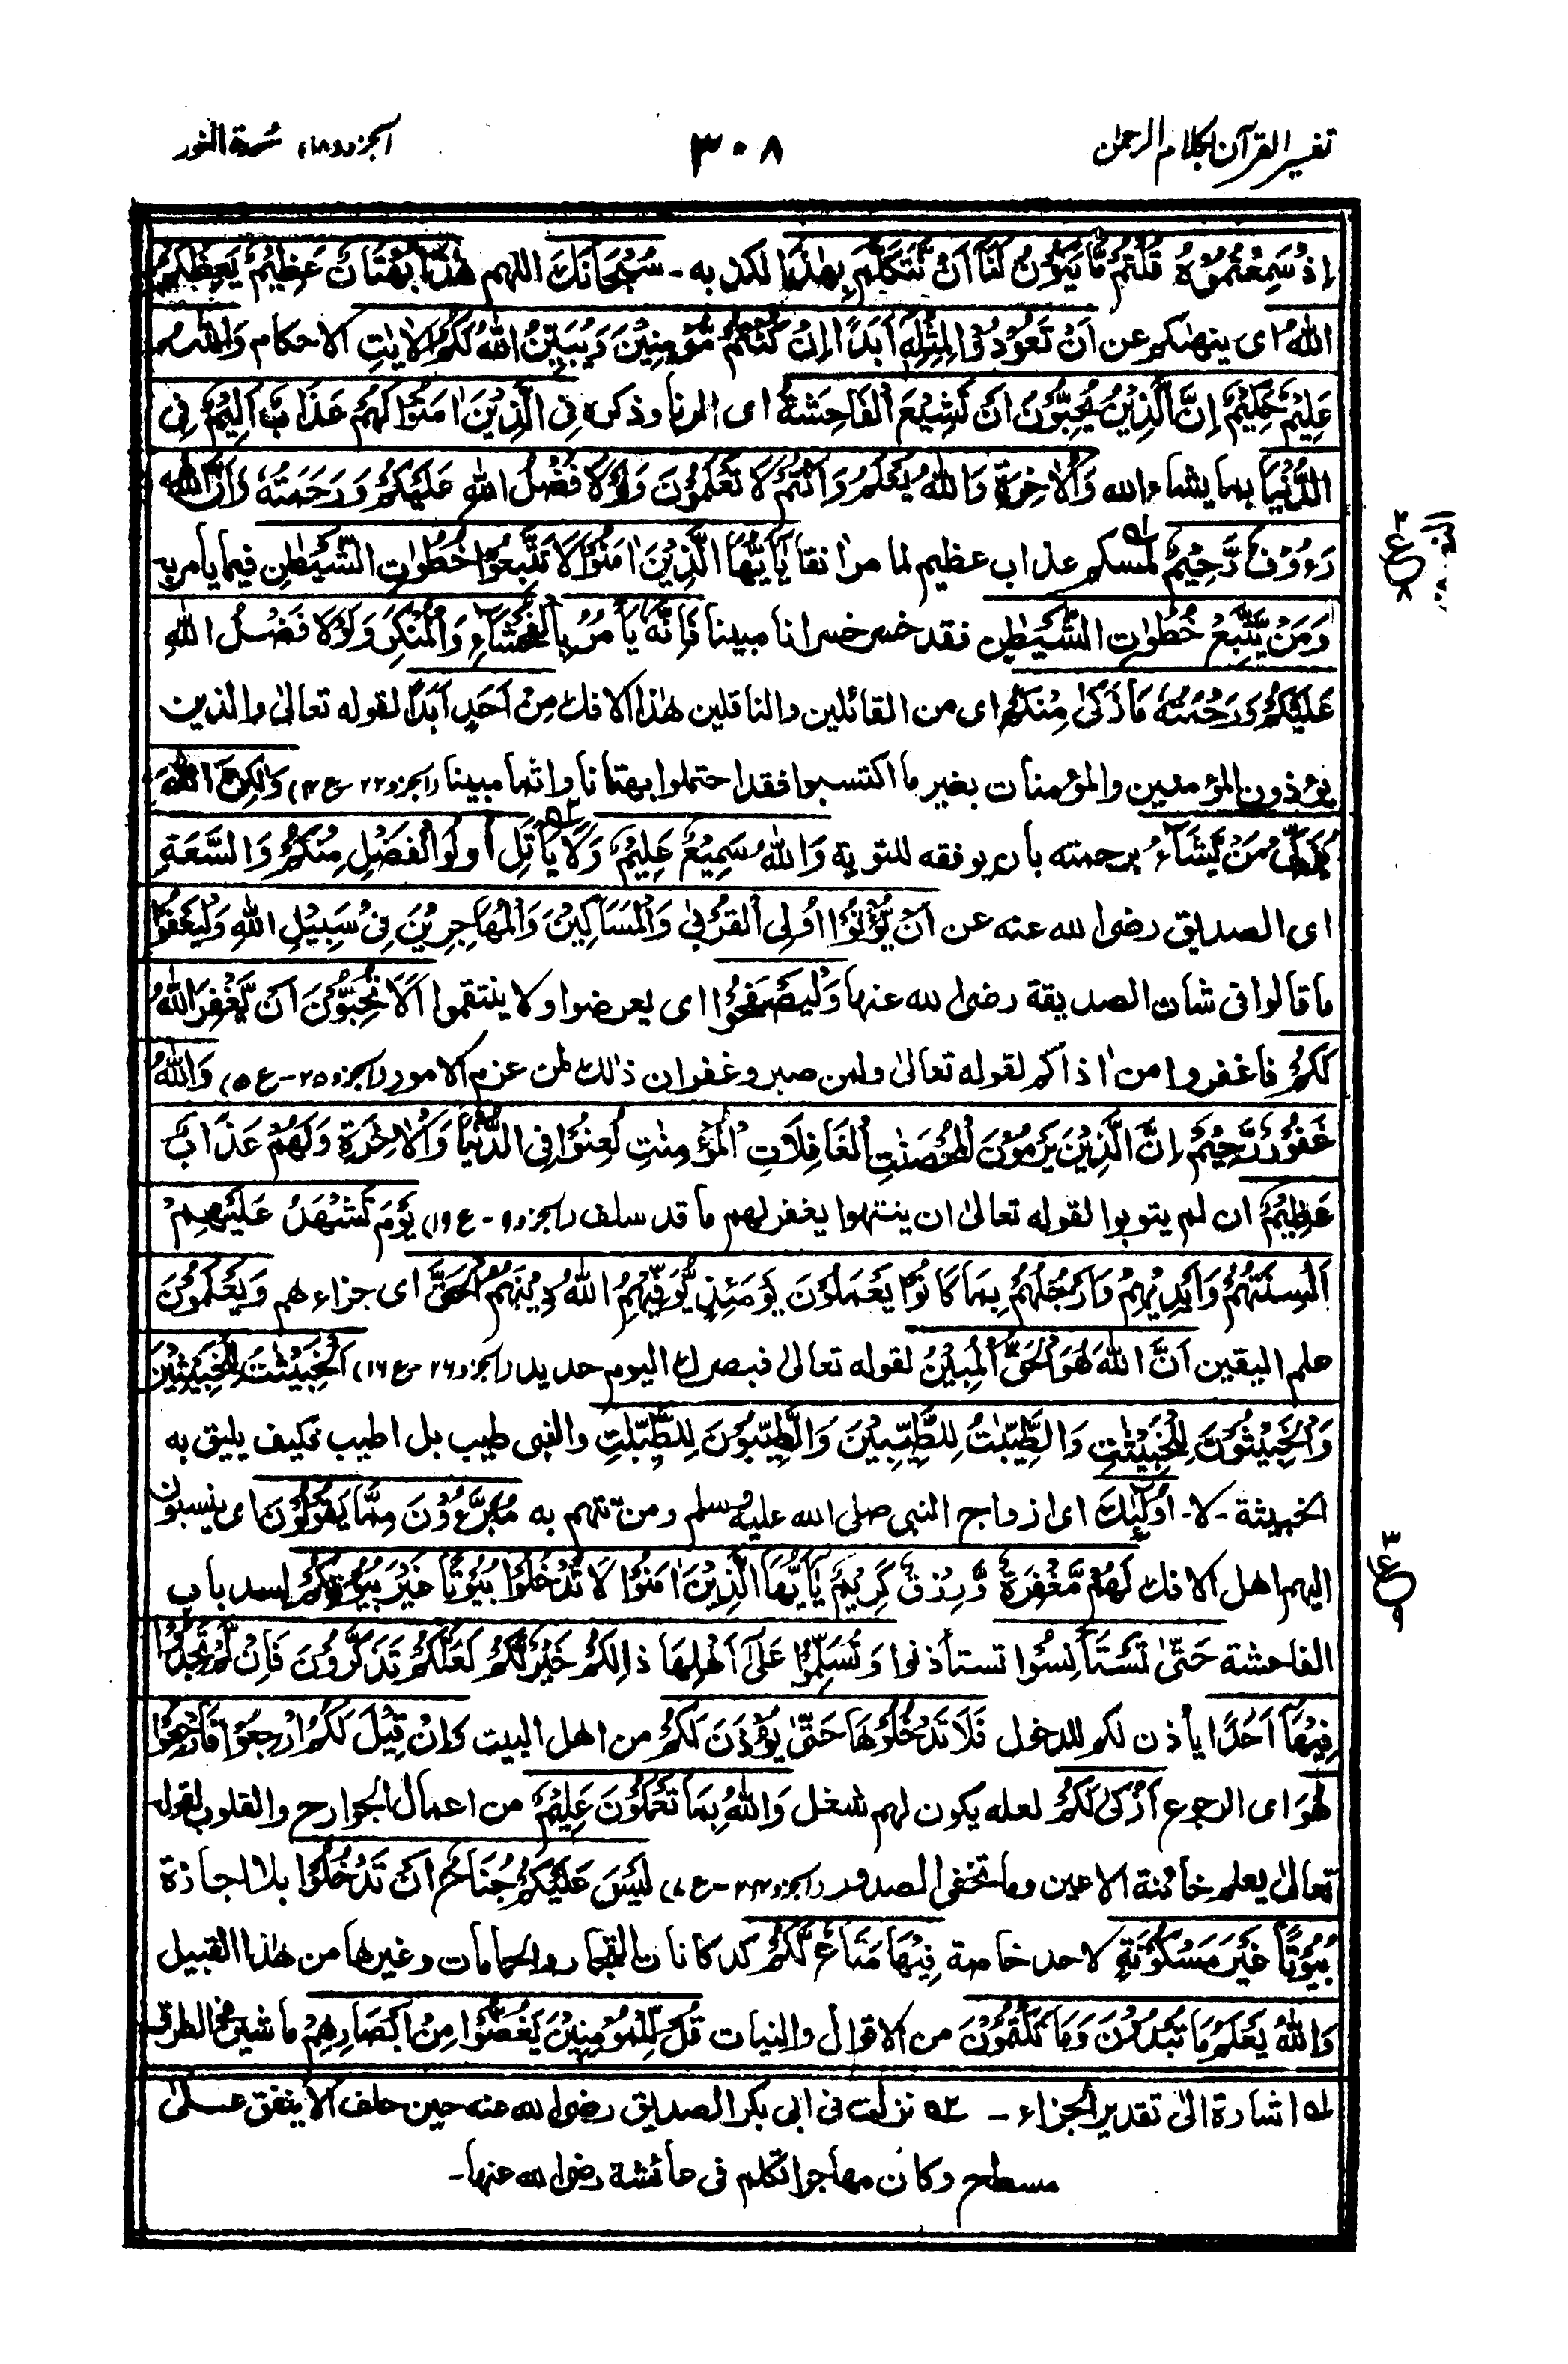 تفسير القرآن بكلام الرحمٰن
٣٠٨
الجزء (١٨) سُورة النور
اِذْ سَمِعْتُمُوْهُ قُلْتُمْ مَّا يَكُوْنُ لَنَآ اَنْ نَّتَكَلَّمَ بِهٰذَا لكذبه ـ سُبْحَانَكَ اللهم هٰذَا بُهْتَانٌ عَظِيْمٌ يَعِظُكُمُ
اللّٰهُ اى ينهٰىكم عن اَنْ تَعُوْدُوْا لِمِثْلِهٖٓ اَبَدًا اِنْ كُنْتُمْ مُّؤْمِنِيْنَ وَيُبَيِّنُ اللّٰهُ لَكُمُ الْاٰيٰتِ الاحكام وَاللّٰهُ
عَلِيْمٌ حَكِيْمٌ اِنَّ الَّذِيْنَ يُحِبُّوْنَ اَنْ تَشِيْعَ الْفَاحِشَةُ اى الزنا وذكره فِى الَّذِيْنَ اٰمَنُوْا لَهُمْ عَذَابٌ اَلِيْمٌ فِى
الدُّنْيَا بما يشاء الله وَالْاٰخِرَةِ وَاللّٰهُ يَعْلَمُ وَاَنْتُمْ لَا تَعْلَمُوْنَ وَلَوْلَا فَضْلُ اللّٰهِ عَلَيْكُمْ وَرَحْمَتُهٗ وَاَنَّ اللّٰهَ
رَءُوْفٌ رَّحِيْمٌ ١ه لمسكم عذاب عظيم لما مر اٰنفا يٰٓاَيُّهَا الَّذِيْنَ اٰمَنُوْا لَا تَتَّبِعُوْا خُطُوٰتِ الشَّيْطٰنِ فيما يأمر به
وَمَنْ يَّتَّبِعْ خُطُوٰتِ الشَّيْطٰنِ فقد خسر خسرانا مبينا فَاِنَّهٗ يَأْمُرُ بِالْفَحْشَآءِ وَالْمُنْكَرِ وَلَوْلَا فَضْلُ اللّٰهِ
عَلَيْكُمْ وَرَحْمَتُهٗ مَا زَكٰى مِنْكُمْ اى من القائلين والناقلين هٰذا الافك مِنْ اَحَدٍ اَبَدًا لقوله تعالىٰ والذين
يؤذون المؤمنين والمؤمنات بغير ما اكتسبوا فقد احتملوا بهتانا واثما مبينا (الجزء ٢٢ - ع ٤) وَلٰكِنَّ اللّٰهَ
يُزَكِّىْ مَنْ يَّشَآءُ برحمته بأن يوفقه للتوبة وَاللّٰهُ سَمِيْعٌ عَلِيْمٌ وَلَا يَأْتَلِ ٢ه اُولُوا الْفَضْلِ مِنْكُمْ وَالسَّعَةِ
اى الصديق رضى الله عنه عن اَنْ يُّؤْتُوْا اُولِى الْقُرْبٰى وَالْمَسَاكِيْنَ وَالْمُهَاجِرِيْنَ فِىْ سَبِيْلِ اللّٰهِ وَلْيَعْفُوْا
ما قالوا فى شان الصديقة رضى الله عنها وَلْيَصْفَحُوْا اى يعرضوا ولا ينتقموا اَلَا تُحِبُّوْنَ اَنْ يَّغْفِرَ اللّٰهُ
لَكُمْ فاغفروا من اٰذاكم لقوله تعالىٰ ولمن صبر وغفر ان ذٰلك لمن عزم الامور (الجزء ٢٥ - ع ٥) وَاللّٰهُ
غَفُوْرٌ رَّحِيْمٌ اِنَّ الَّذِيْنَ يَرْمُوْنَ الْمُحْصَنٰتِ الْغَافِلَاتِ الْمُؤْمِنٰتِ لُعِنُوْا فِى الدُّنْيَا وَالْاٰخِرَةِ وَلَهُمْ عَذَابٌ
عَظِيْمٌ ان لم يتوبوا لقوله تعالىٰ ان ينتهوا يغفر لهم ما قد سلف (الجزء ٩ - ع ١٩) يَوْمَ تَشْهَدُ عَلَيْهِمْ
اَلْسِنَتُهُمْ وَاَيْدِيْهِمْ وَاَرْجُلُهُمْ بِمَا كَانُوْا يَعْمَلُوْنَ يَوْمَئِذٍ يُّوَفِّيْهِمُ اللّٰهُ دِيْنَهُمُ الْحَقَّ اى جزاءهم وَيَعْلَمُوْنَ
علم اليقين اَنَّ اللّٰهَ هُوَ الْحَقُّ الْمُبِيْنُ لقوله تعالىٰ فبصرك اليوم حديد (الجزء ٢٦ - ع ١٦) اَلْخَبِيْثٰتُ لِلْخَبِيْثِيْنَ
وَالْخَبِيْثُوْنَ لِلْخَبِيْثٰتِ وَالطَّيِّبٰتُ لِلطَّيِّبِيْنَ وَالطَّيِّبُوْنَ لِلطَّيِّبٰتِ والنبى طيب بل اطيب فكيف يليق به
الخبيثة ـ لا ـ اُولٰٓئِكَ اى ازواج النبى صلى الله عليه وسلم ومن تتهم به مُبَرَّءُوْنَ مِمَّا يَقُوْلُوْنَ اى ينسبون
اليهم اهل الافك لَهُمْ مَّغْفِرَةٌ وَّرِزْقٌ كَرِيْمٌ يٰٓاَيُّهَا الَّذِيْنَ اٰمَنُوْا لَا تَدْخُلُوْا بُيُوْتًا غَيْرَ بُيُوْتِكُمْ لسد باب
الفاحشة حَتّٰى تَسْتَأْنِسُوْا تستأذنوا وَتُسَلِّمُوْا عَلٰٓى اَهْلِهَا ذٰلِكُمْ خَيْرٌ لَّكُمْ لَعَلَّكُمْ تَذَكَّرُوْنَ فَاِنْ لَّمْ تَجِدُوْا
فِيْهَآ اَحَدًا يأذن لكم للدخول فَلَا تَدْخُلُوْهَا حَتّٰى يُؤْذَنَ لَكُمْ من اهل البيت وَاِنْ قِيْلَ لَكُمُ ارْجِعُوْا فَارْجِعُوْا
هُوَ اى الرجوع اَزْكٰى لَكُمْ لعله يكون لهم شغل وَاللّٰهُ بِمَا تَعْمَلُوْنَ عَلِيْمٌ من اعمال الجوارح والقلوب لقوله
تعالىٰ يعلم خائنة الاعين وما تخفى الصدور (الجزء ٢٤ - ع ٧) لَيْسَ عَلَيْكُمْ جُنَاحٌ اَنْ تَدْخُلُوْا بلا اجازة
بُيُوْتًا غَيْرَ مَسْكُوْنَةٍ لاحد خاصة فِيْهَا مَتَاعٌ لَّكُمْ كدكانات التجار والحمامات وغيرها من هٰذا القبيل
وَاللّٰهُ يَعْلَمُ مَا تُبْدُوْنَ وَمَا تَكْتُمُوْنَ من الاقوال والنيات قُلْ لِّلْمُؤْمِنِيْنَ يَغُضُّوْا مِنْ اَبْصَارِهِمْ ماشين فى الطرق
١ه اشارة الىٰ تقدير الجزاء ـ ٢ه نزلت فى ابى بكر الصديق رضى الله عنه حين حلف الا ينفق علىٰ
مسطح وكان مهاجرا تكلم فى عائشة رضى الله عنها ـ